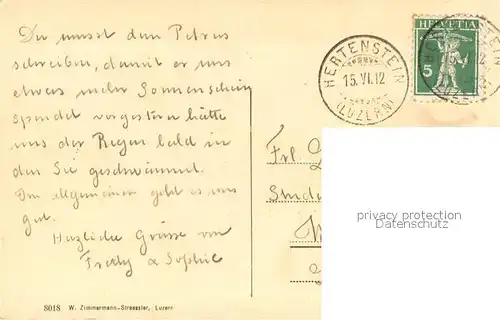 Du musst dem Petrus
schreiben, damit er uns
etwas mehr Sonnenschein
spendet vorgestern hätte
uns der Regen bald in
den See geschwemmt.
Im allgemeinen geht es uns
gut.
Herzliche Grüsse von
Fredy & Sophie
8018 W. Zimmermann-Straessler, Luzern
HELVETIA
5
HERTENSTEIN
15.VI.12
(LUZERN)
Frl
privacy protection
Datenschutz